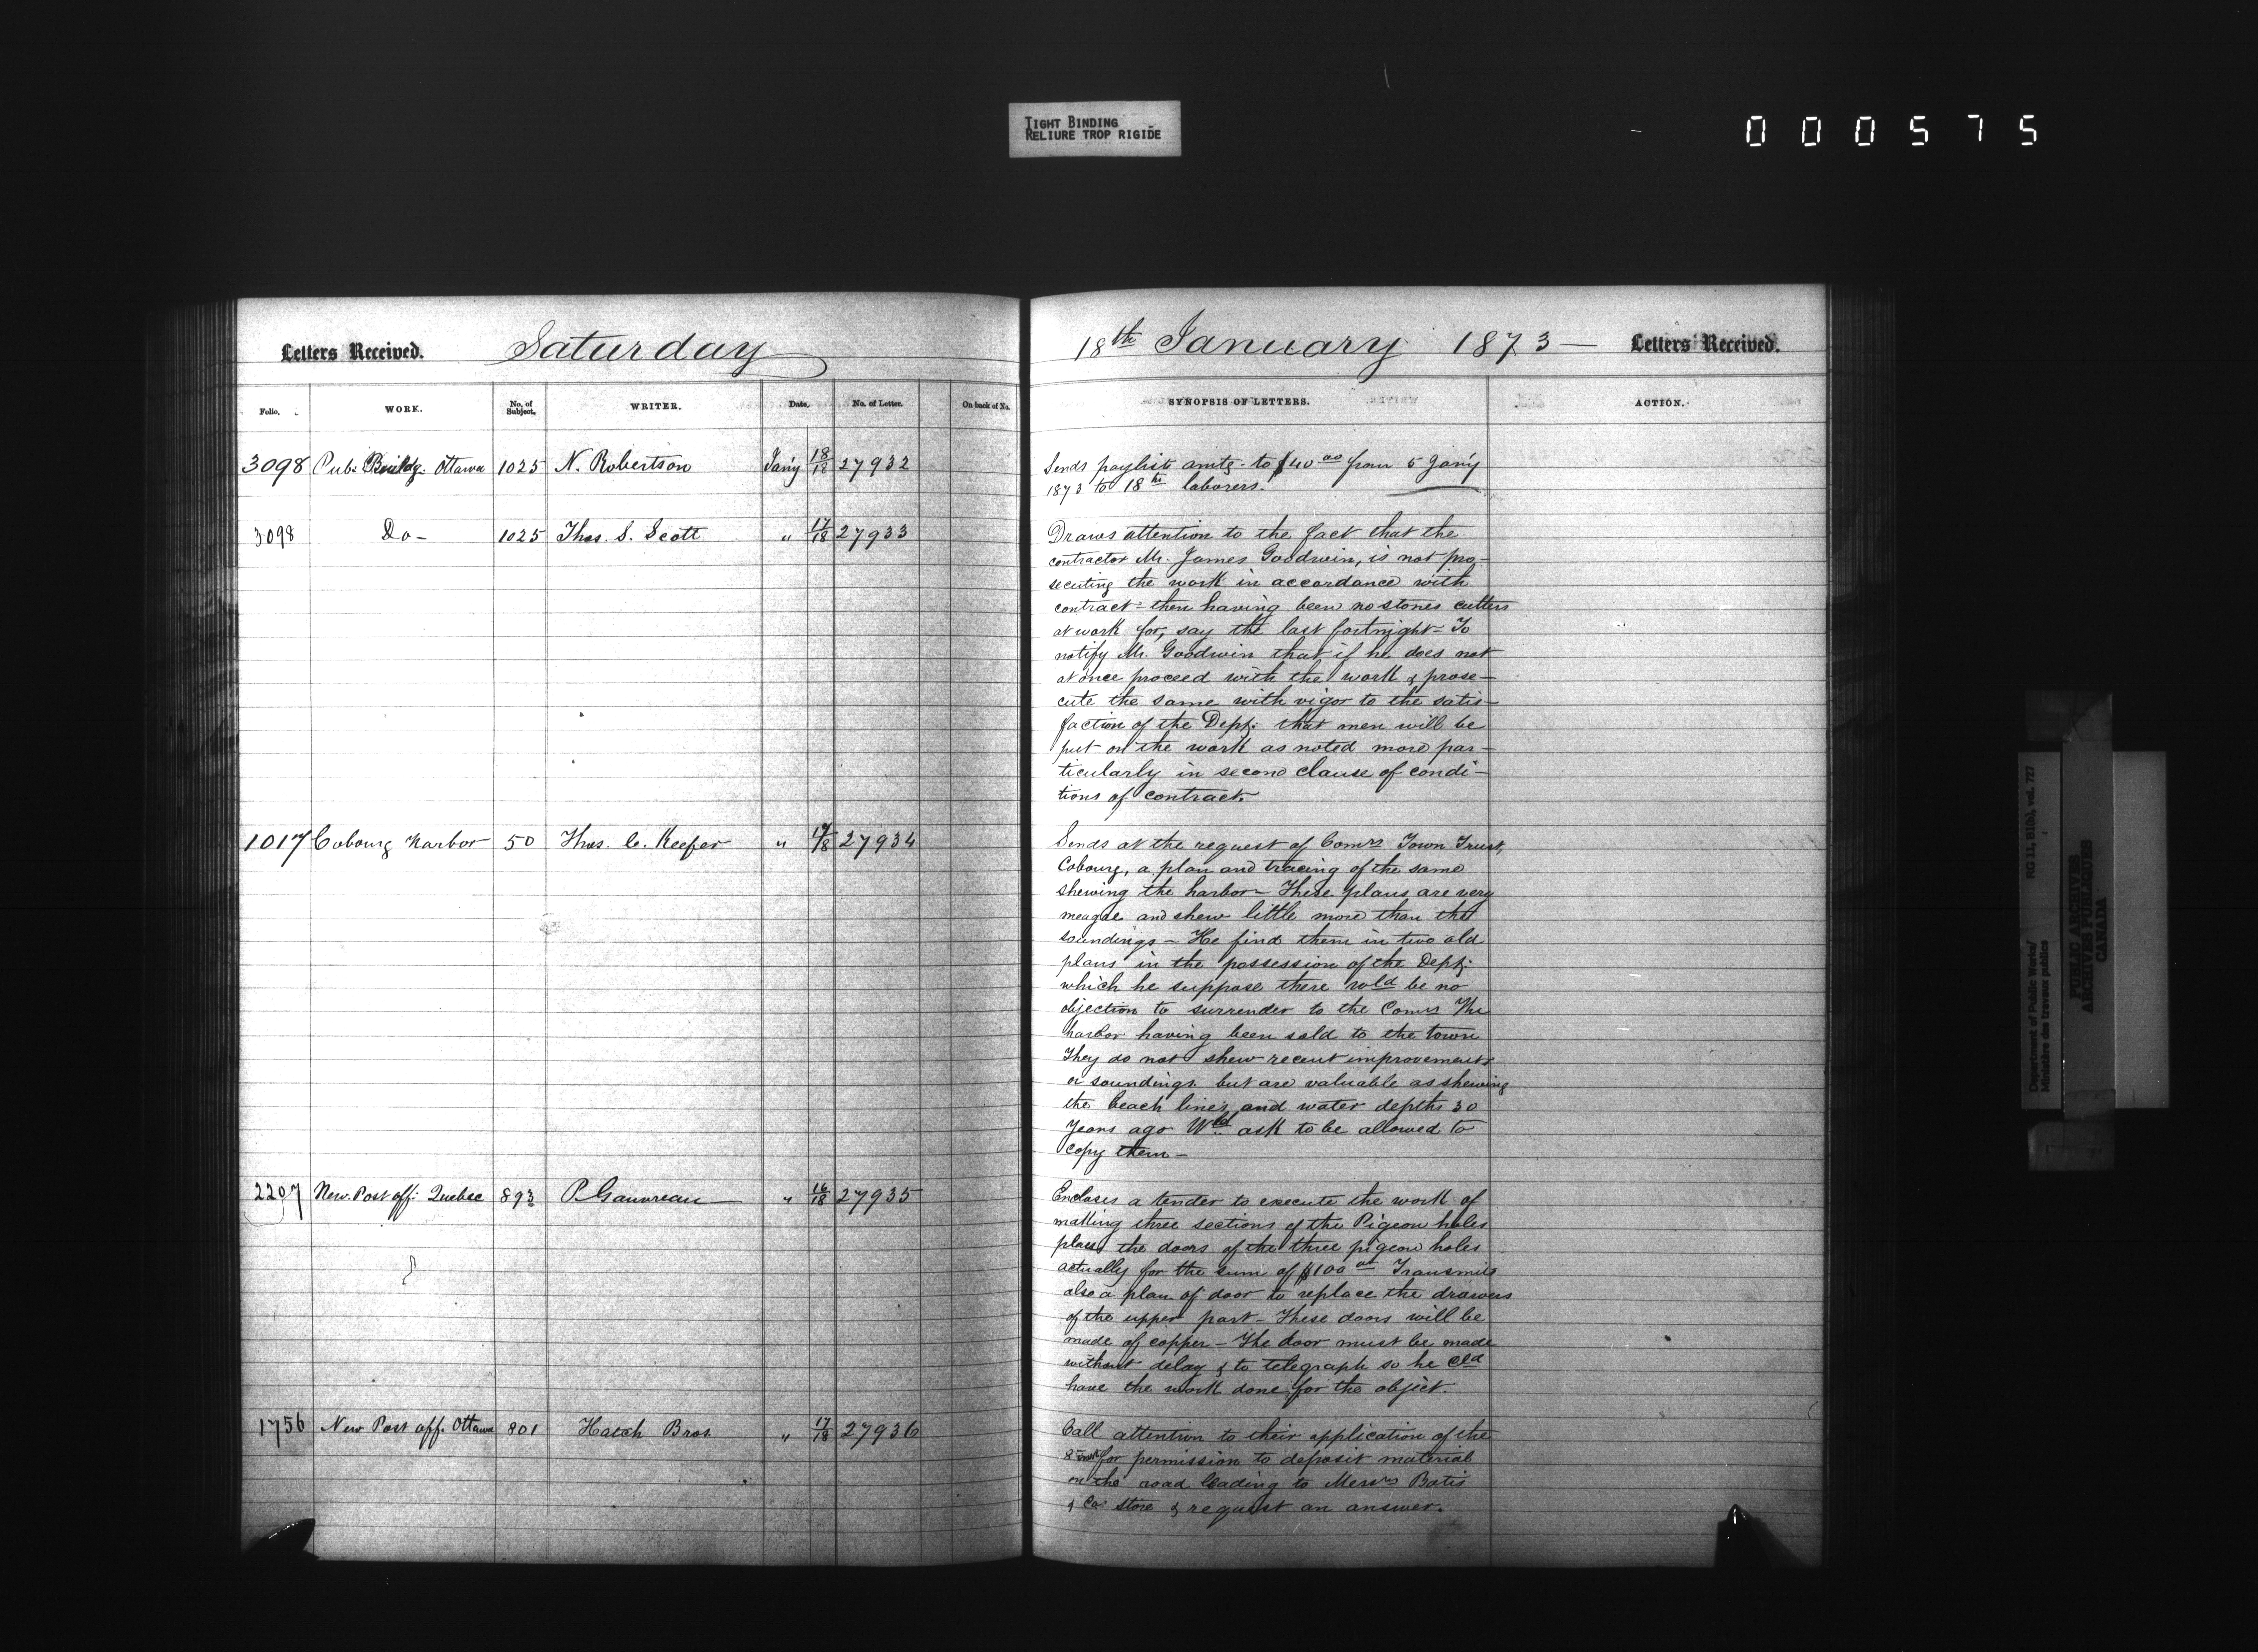 TIGHT BINDING
RELIURE TROP RIGIDE
000575
Letters Received. Saturday 18th January 1873 — Letters Received.
Folio. WORK. No. of Subject. WRITER. Date. No. of Letter. On back of No. SYNOPSIS OF LETTERS. ACTION.
3098 Pub: Buildg: Ottawa 1025 N. Robertson Jan'y 18/18 27932
Sends paylists amtg. to $40 00 from 5 Jan'y
1873 to 18th laborers.
3098 Do - 1025 Thos. S. Scott " 17/18 27933
Draws attention to the fact that the
contractor Mr. James Goodwin, is not pro-
secuting the work in accordance with
contract - then having been no stones cutters
at work for, say the last fortnight - To
notify Mr. Goodwin that if he does not
at once proceed with the work & prose-
cute the same with vigor to the satis-
faction of the Dept: that men will be
put on the work as noted more par-
ticularly in second clause of condi-
tions of contract.
1017 Cobourg Harbor 50 Thos. C. Keefer " 17/18 27934
Sends at the request of Comrs Town Trust,
Cobourg, a plan and tracing of the same
shewing the harbor - These plans are very
meagre and shew little more than the
soundings - He find them in two old
plans in the possession of the Dept:
which he suppose there wold be no
objection to surrender to the Comrs The
harbor having been sold to the town
They do not shew recent improvements
or soundings but are valuable as shewing
the beach lines and water depths 30
years ago Wld ask to be allowed to
copy them -
2207 New Post off: Quebec 893 P. Gauvreau " 16/18 27935
Encloses a tender to execute the work of
making three sections of the Pigeon holes
place the doors of the three pigeon holes
actually for the sum of $100 00 Transmits
also a plan of door to replace the drawers
of the upper part - These doors will be
made of copper - The door must be made
without delay & to telegraph so he cld
have the work done for the object.
1756 New Post off. Ottawa 801 Hatch Bros. " 17/18 27936
Call attention to their application of the
8 for permission to deposit material
on the road leading to Messrs Batis
& Co: store & request an answer.
Department of Public Works/
Ministère des travaux publics
RG 11, B1(b), vol. 727
PUBLIC ARCHIVES
ARCHIVES PUBLIQUES
CANADA